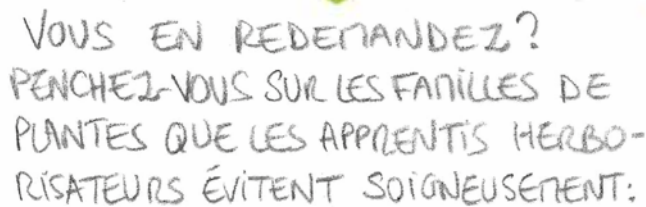 VOUS EN REDEMANDEZ?
PENCHEZ-VOUS SUR LES FAMILLES DE
PLANTES QUE LES APPRENTIS HERBO-
RISATEURS ÉVITENT SOIGNEUSEMENT: